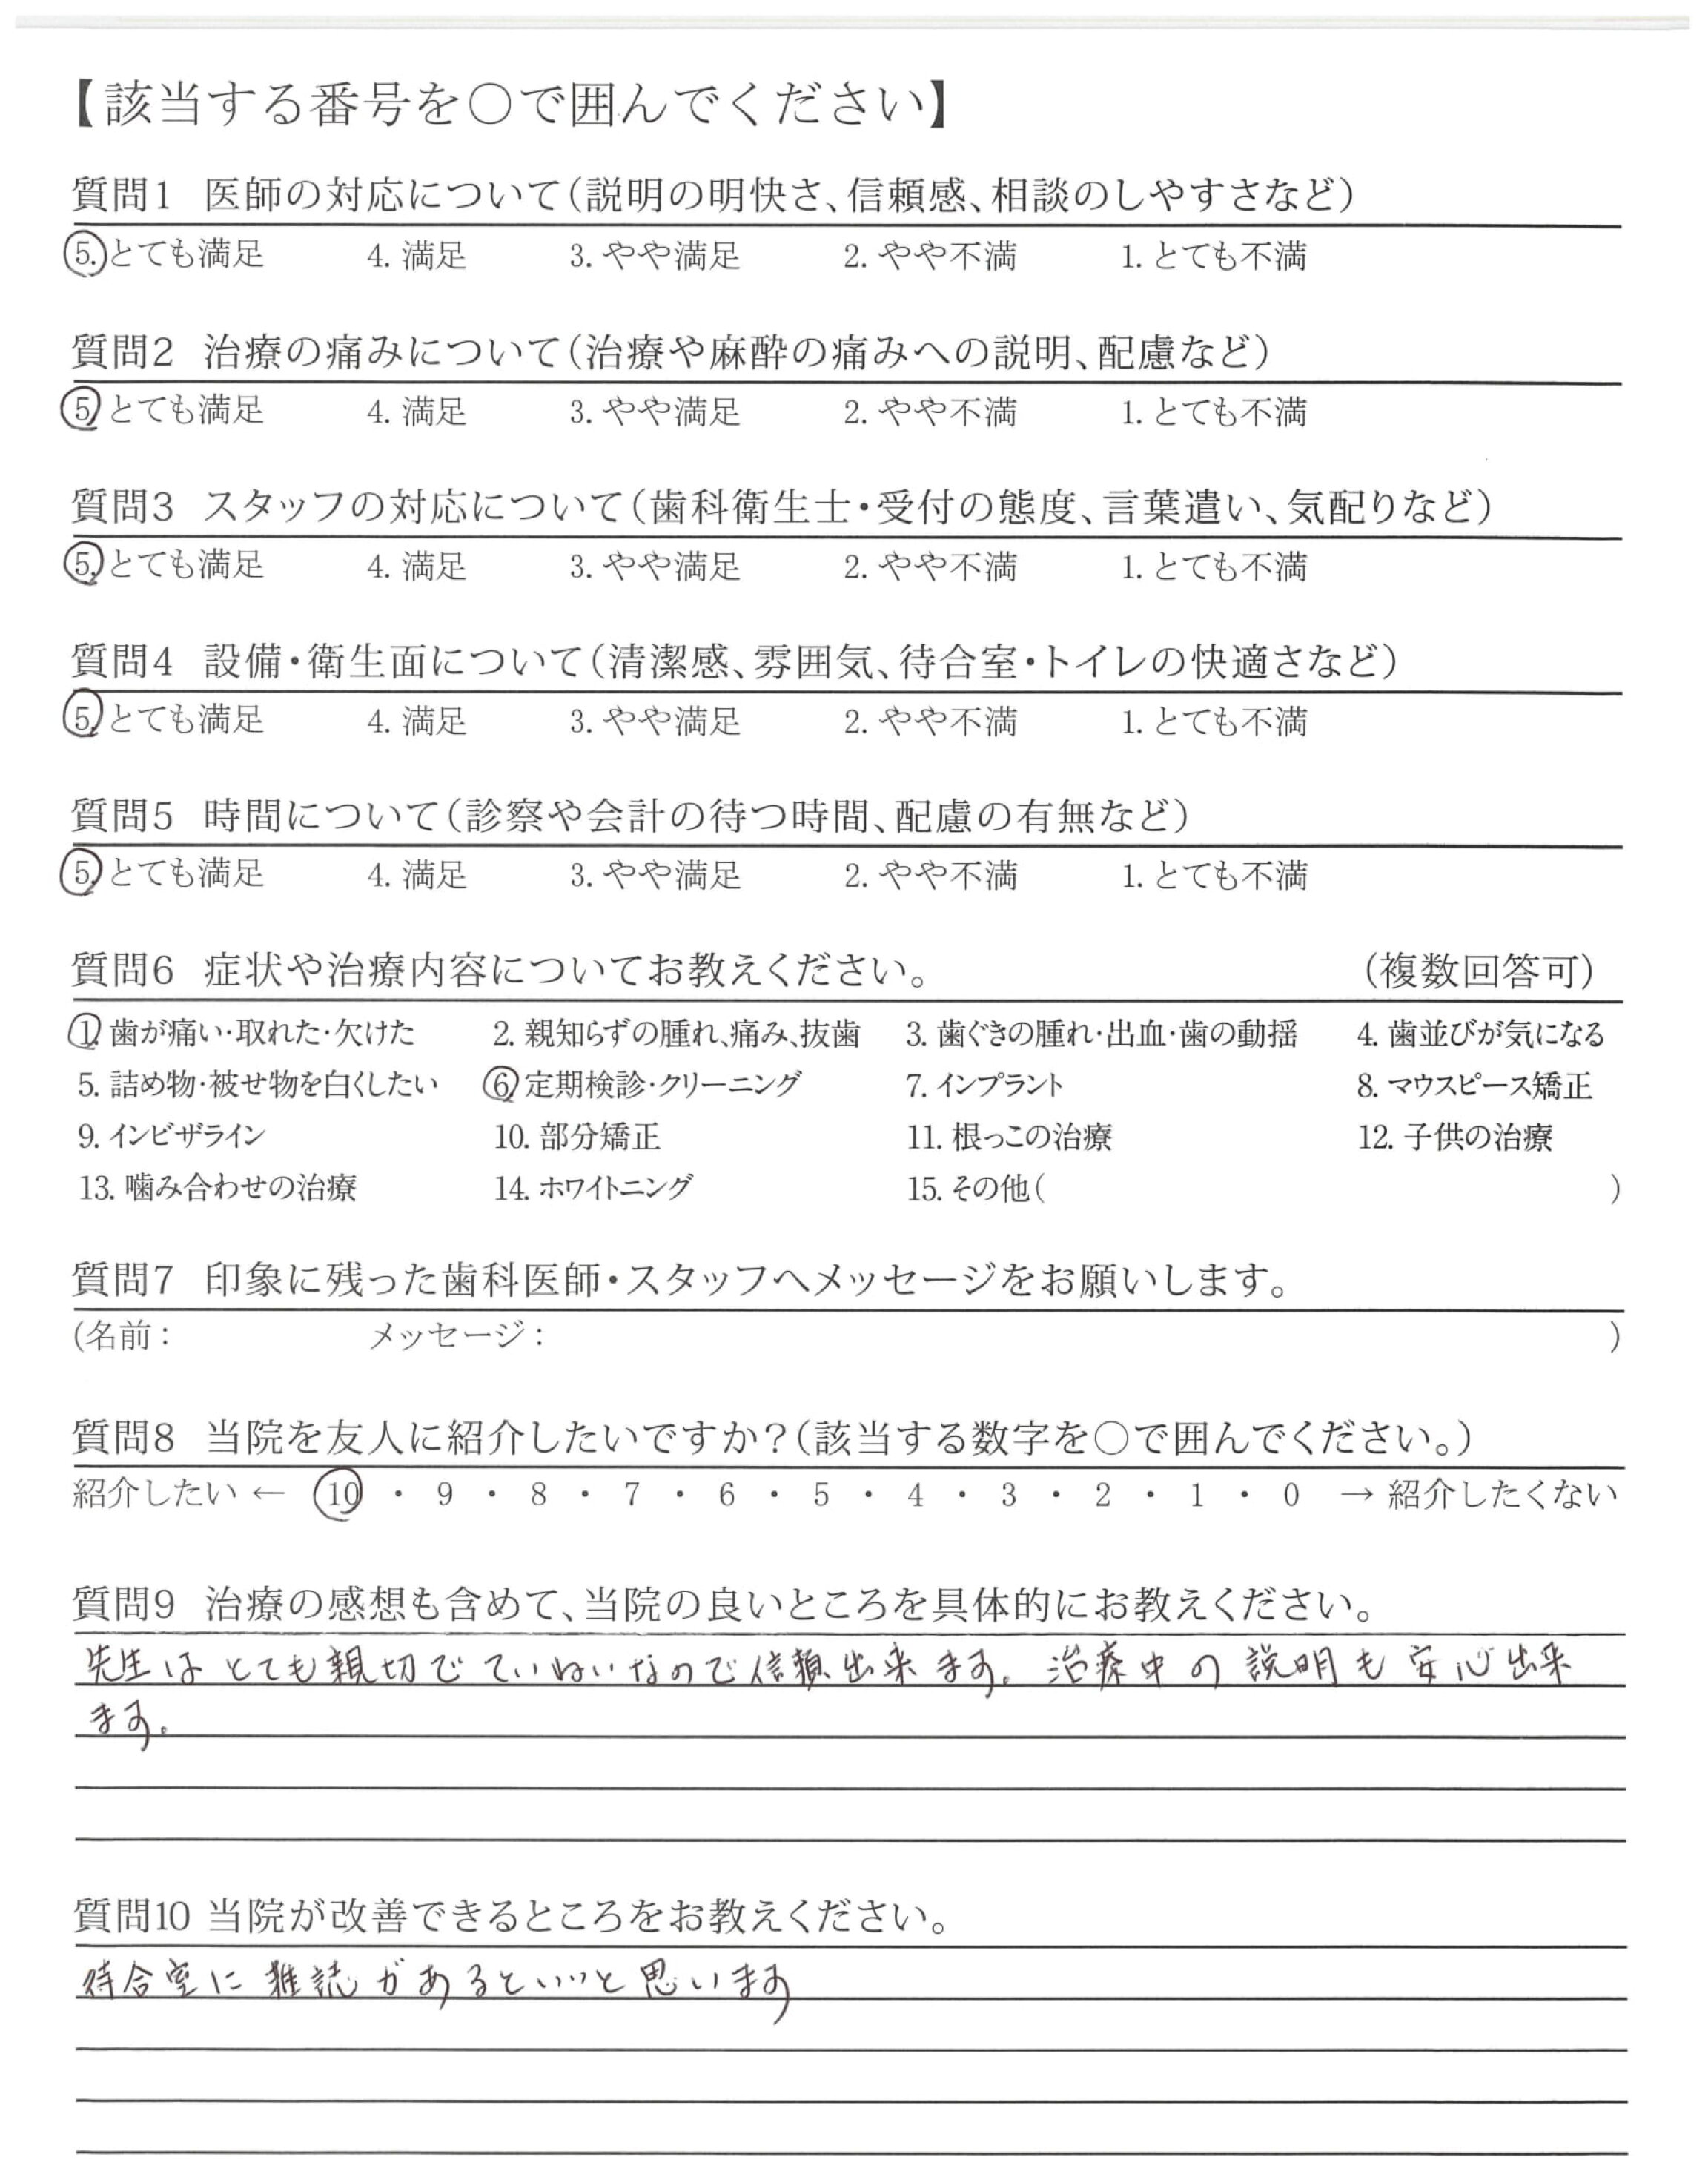 【該当する番号を○で囲んでください】
質問1 医師の対応について(説明の明快さ、信頼感、相談のしやすさなど)
5. とても満足 4. 満足 3. やや満足 2. やや不満 1. とても不満
質問2 治療の痛みについて(治療や麻酔の痛みへの説明、配慮など)
5. とても満足 4. 満足 3. やや満足 2. やや不満 1. とても不満
質問3 スタッフの対応について(歯科衛生士・受付の態度、言葉遣い、気配りなど)
5. とても満足 4. 満足 3. やや満足 2. やや不満 1. とても不満
質問4 設備・衛生面について(清潔感、雰囲気、待合室・トイレの快適さなど)
5. とても満足 4. 満足 3. やや満足 2. やや不満 1. とても不満
質問5 時間について(診察や会計の待つ時間、配慮の有無など)
5. とても満足 4. 満足 3. やや満足 2. やや不満 1. とても不満
質問6 症状や治療内容についてお教えください。 (複数回答可)
1. 歯が痛い・取れた・欠けた 2. 親知らずの腫れ、痛み、抜歯 3. 歯ぐきの腫れ・出血・歯の動揺 4. 歯並びが気になる
5. 詰め物・被せ物を白くしたい 6. 定期検診・クリーニング 7. インプラント 8. マウスピース矯正
9. インビザライン 10. 部分矯正 11. 根っこの治療 12. 子供の治療
13. 噛み合わせの治療 14. ホワイトニング 15. その他( )
質問7 印象に残った歯科医師・スタッフへメッセージをお願いします。
(名前: メッセージ: )
質問8 当院を友人に紹介したいですか?(該当する数字を○で囲んでください。)
紹介したい ← 10 ・ 9 ・ 8 ・ 7 ・ 6 ・ 5 ・ 4 ・ 3 ・ 2 ・ 1 ・ 0 → 紹介したくない
質問9 治療の感想も含めて、当院の良いところを具体的にお教えください。
先生はとても親切でていねいなので信頼出来ます。治療中の説明も安心出来
ます。
質問10 当院が改善できるところをお教えください。
待合室に雑誌があるといいと思います